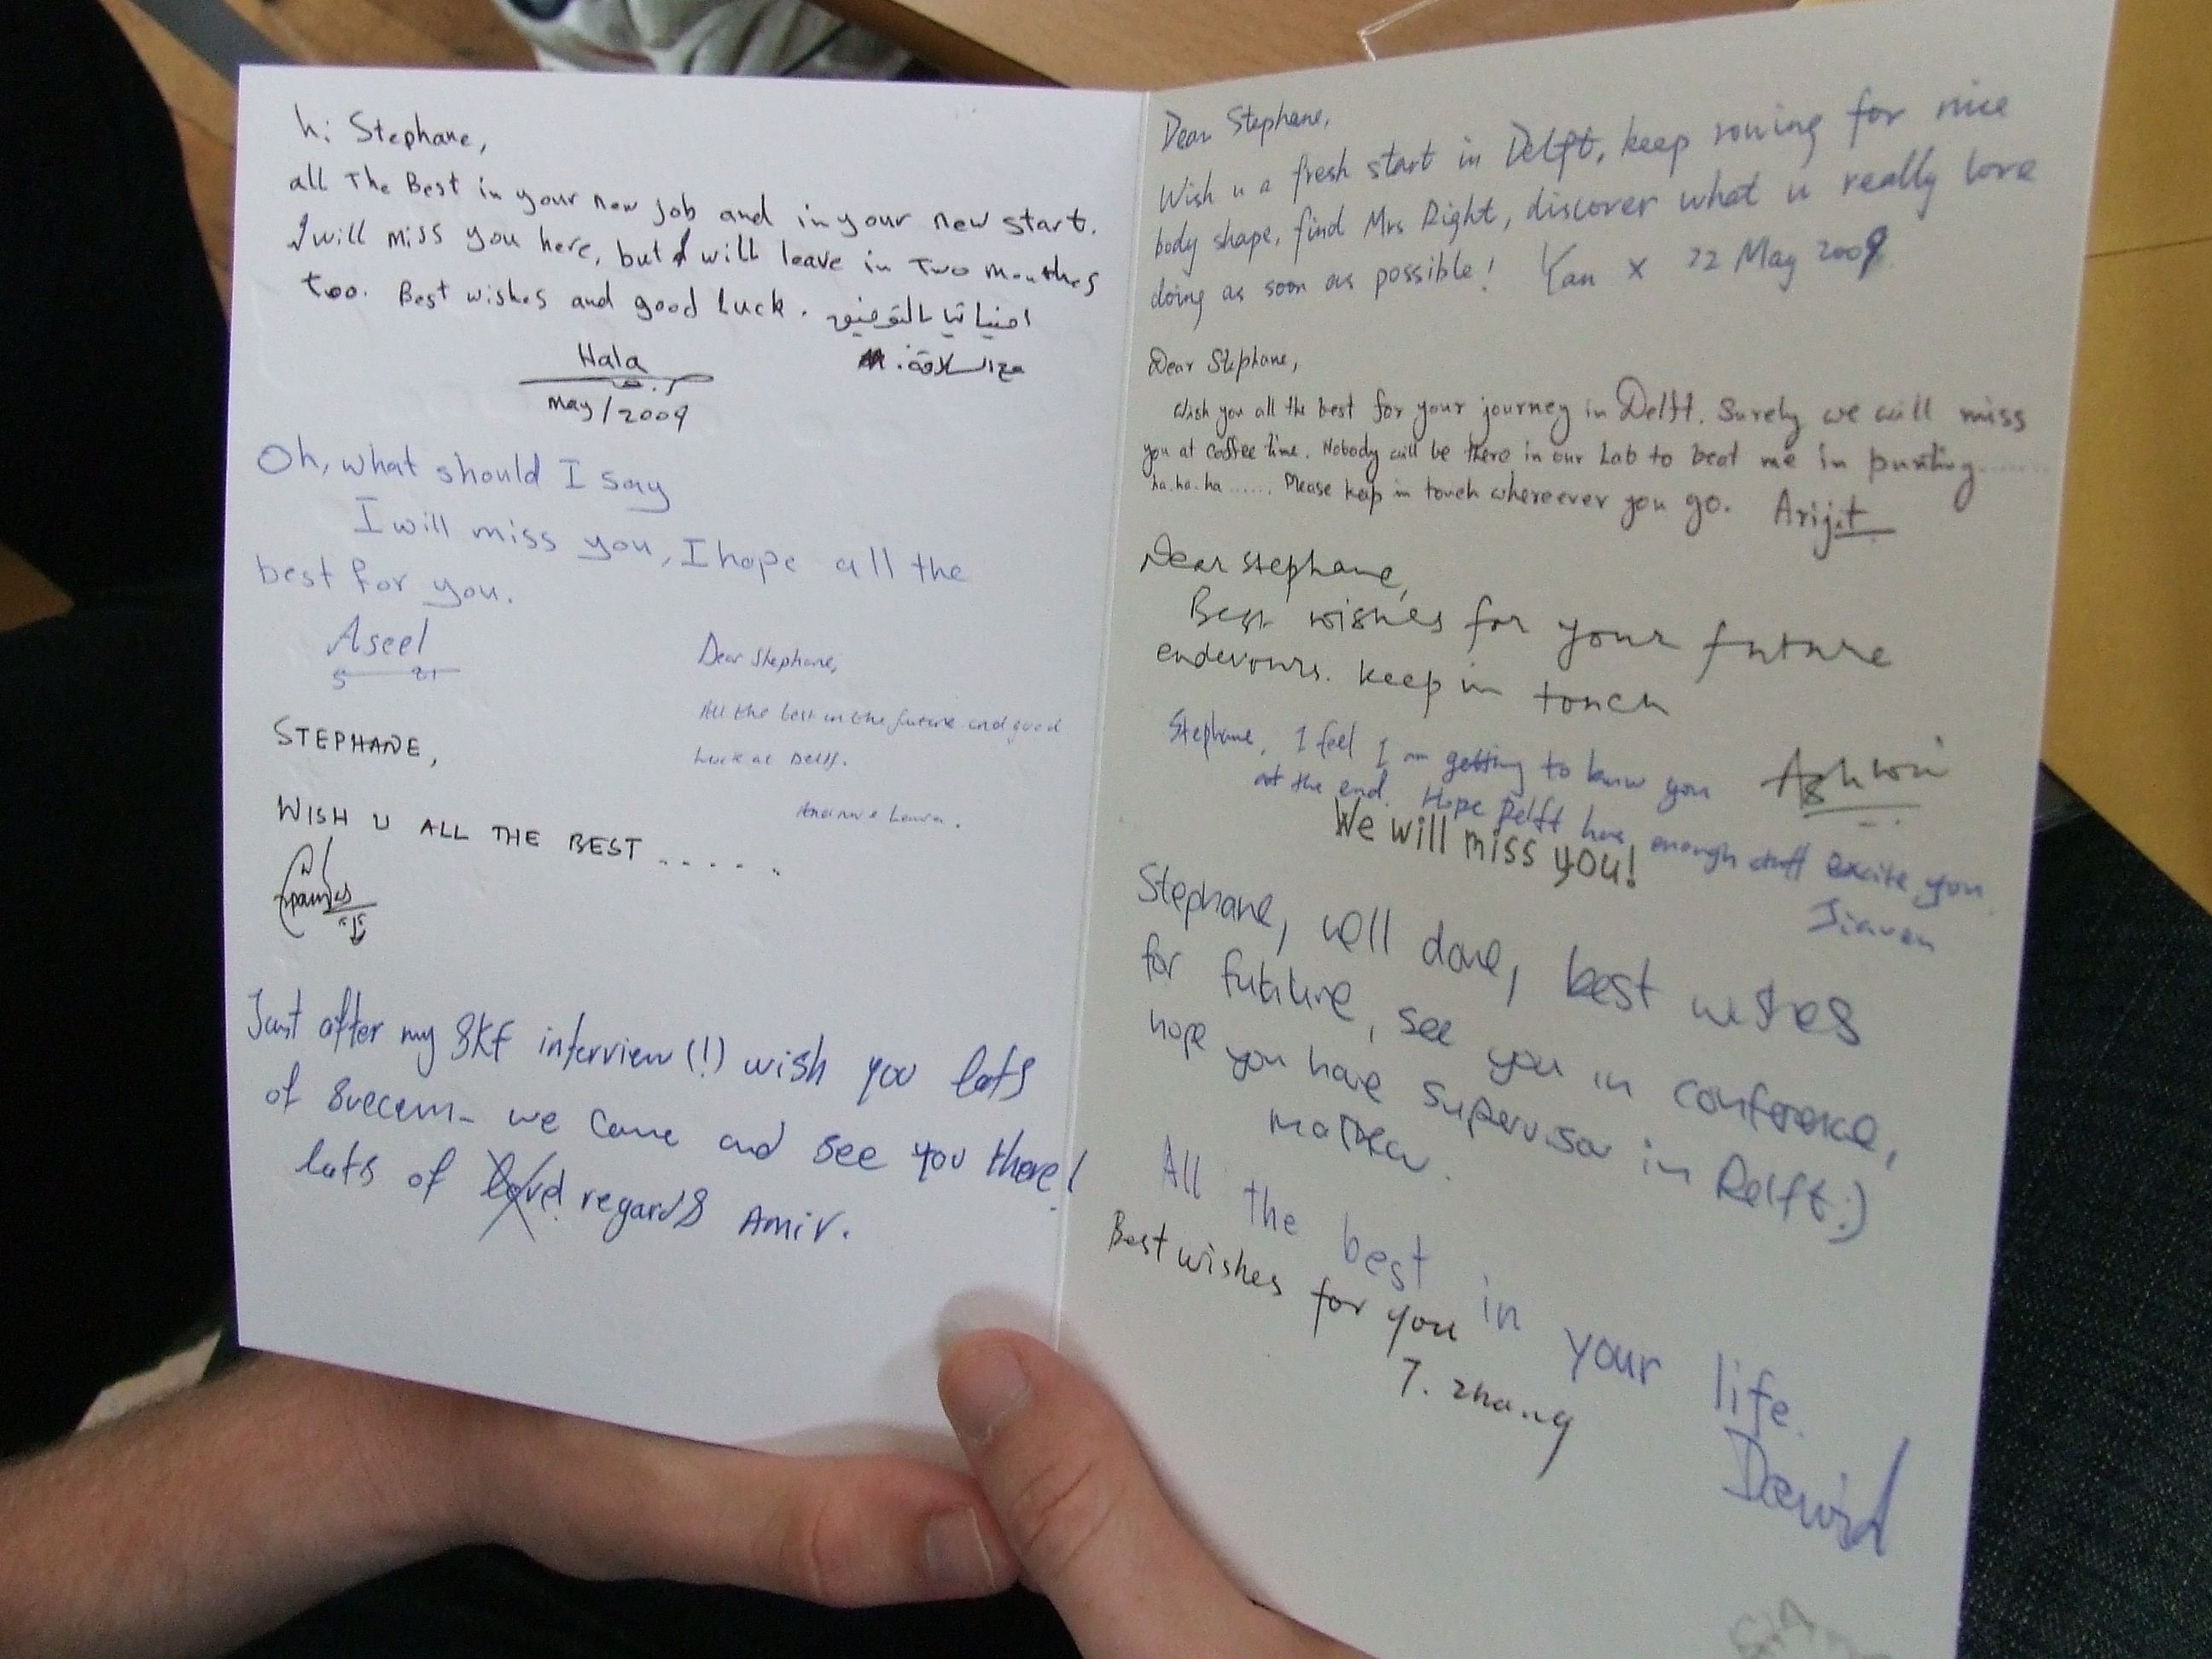 hi Stephane,
all The Best in your new job and in your new start.
I will miss you here, but I will leave in Two monthes
too. Best wishes and good luck. امنياتيا بالتوفيق
مع السلامة.
Hala
May/2009
Oh, what should I say
I will miss you, I hope all the
best for you.
Aseel
5 21
Dear Stephane,
All the best in the future and good
luck at Delft.
STEPHANE,
WISH U ALL THE BEST . . . . . .
Just after my SKF interview (!) wish you lots
of success - we come and see you there!
lots of regards Amir.
Dear Stephane,
Wish u a fresh start in Delft, keep rowing for nice
body shape, find Mrs Right, discover what u really love
doing as soon as possible! Yan x 22 May 2009
Dear Stephane,
Wish you all the best for your journey in Delft. Surely we will miss
you at coffee time. Nobody will be there in our Lab to beat me in punting........
ha.ha.ha ...... Please keep in touch whereever you go. Arijit
Dear Stephane,
Best wishes for your future
endevours. Keep in touch
Ashwin
Stephane, I feel I am getting to know you
at the end. Hope Delft has enough stuff excite you
We will miss you!
Stephane, well done, best wishes
for future, see you in conference,
hope you have supervisor in Delft :)
All the best in your life.
David
Best wishes for you
T. Zhang